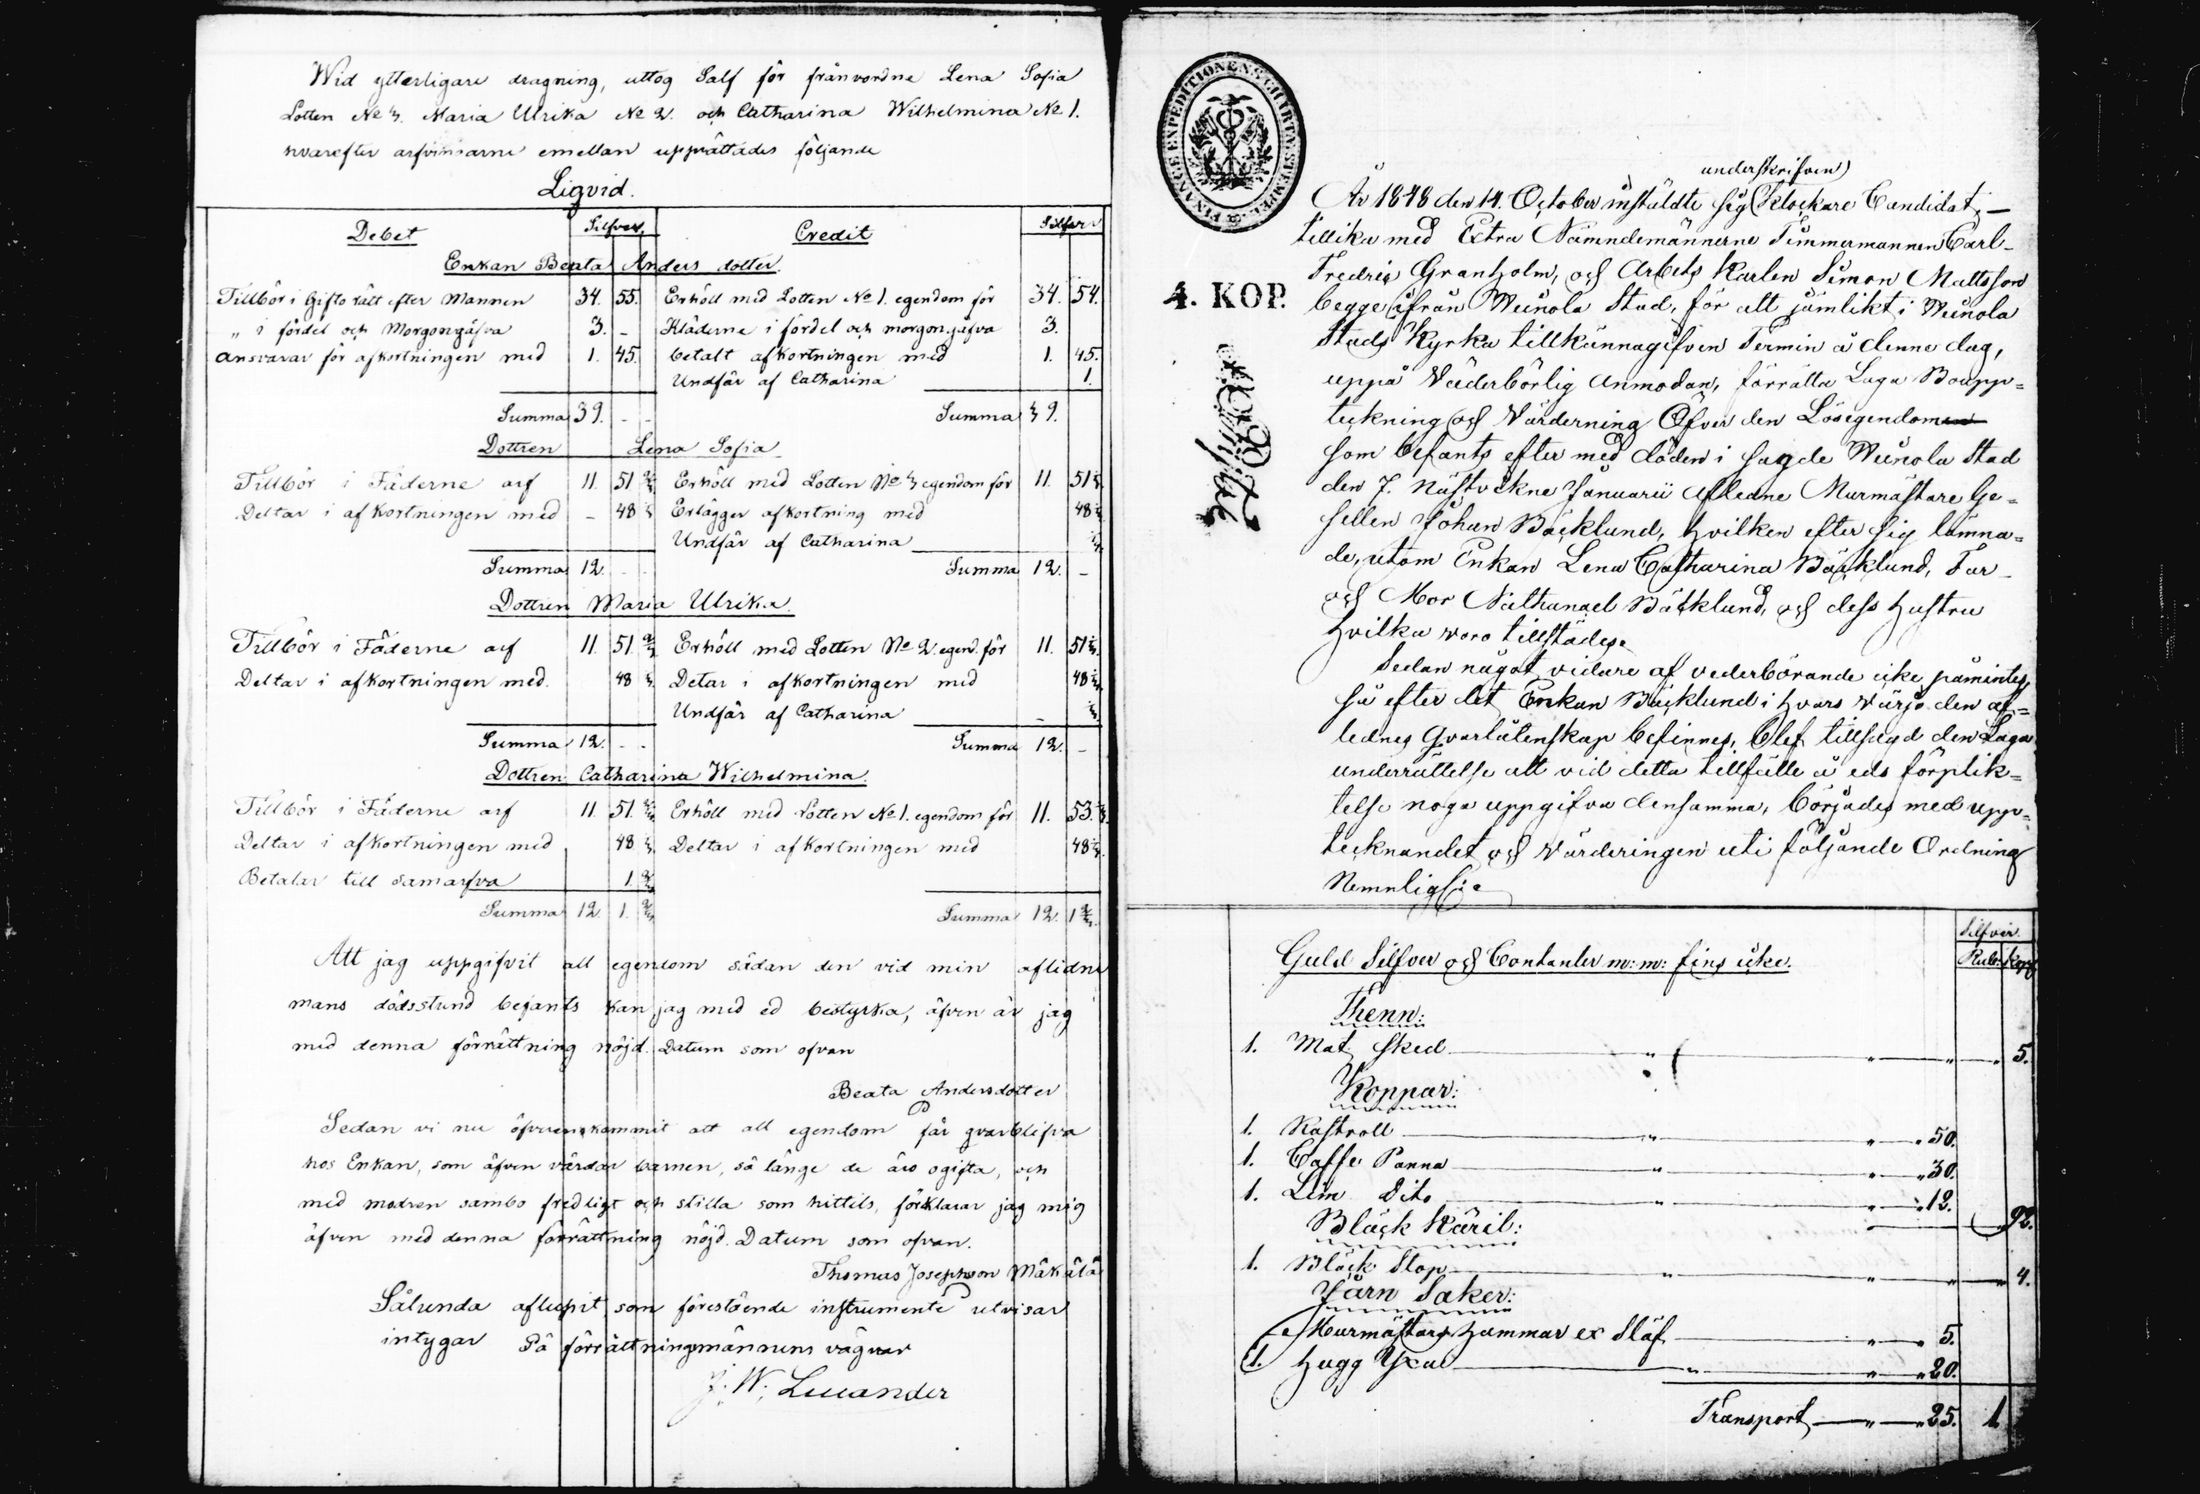 Wid ytterligare dragning, uttog Salf för frånvordne Lena Sofia
Lotten No 3. Maria Ulrika No 2. och Catharina Wilhelmina No 1.
hvarefter arfvingarne emellan upprättades följande
Liqvid.
Debet Silfver. Credit Silfver
Enkan Beata Anders dotter.
Tillhör i Gifto rätt efter Mannen 34. 55. Erhöll med Lotten No 1. egendom för 34. 54.
„ i fördel och Morgongåfva 3. - Kläderne i fördel och morgongåfva 3.
Ansvarar för afkortningen med 1. 45. betalt afkortningen med 1. 45.
Undfår af Catharina 1.
Summa 39. - - Summa 39.
Dottren Lena Sofia
Tillhör i Fäderne arf 11. 51 2/3 Erhöll med Lotten No 3 egendom för 11. 51 1/3
Deltar i afkortningen med - 48 1/3 Erlägger afkortning med 48 1/3
Undfår af Catharina 1/3
Summa 12. - - Summa 12. -
Dottren Maria Ulrika.
Tillhör i Fäderne arf 11. 51. 2/3 Erhöll med Lotten No 2. egend. för 11. 51 1/3
Deltar i afkortningen med. 48 1/3 Detar i afkortningen med 48 1/3
Undfår af Catharina 1/3
Summa 12. - - Summa 12. -
Dottren Catharina Wilhelmina.
Tillhör i Fäderne arf 11. 51. 2/3 Erhöll med Lotten No 1. egendom för 11. 53. 1/3
Deltar i afkortningen med 48 1/3 Deltar i afkortningen med 48 1/3
Betalar till samarfva 1. 2/3
Summa 12. 1. 2/3 Summa 12. 1 2/3
Att jag uppgifvit all egendom sådan den vid min aflidne
mans dödsstund befants kan jag med ed bestyrka, äfven är jag
med denna förrättning nöjd. Datum som ofvan
Beata Andersdotter
Sedan vi nu öfverenskommit att all egendom får qvarblifva
hos Enkan, som äfven vårdar barnen, så länge de äro ogifta, och
med modren sambo fredligt och stilla som hittils, förklarar jag mig
äfven med denna förrättning nöjd. Datum som ofvan.
Thomas Josephson Mäkälä
Sålunda aflupit, som förestående instrumente utvisar
intygar På förrättningsmännens vägnar
J. W. Lucander
FINANCE EXPEDITIONENS CHARTÆ STEMPEL
4. KOP.
underskrifven
År 1848 den 14. October instäldte sig Klockare Candidat. —
tillika med Extra Nämndemännerne Timmermannen Carl-
Fredric Granholm, och Arbets Karlen Simon Mattsson
begge ifrån Stad, för att jämlikt i
Stads Kyrka tillkännagifven Termin å denne dag,
uppå Väderbörlig anmodan, förrätta Laga Boupp=
teckning och Värderning Öfver den Lösegendomen
som befants efter med döden i sagde Stad
den 7. nästvekne Januarii afledne Murmästare Ge=
sellen Johan Bäcklund, hvilken efter sig lämna=
de, utom Enkan Lena Catharina Bäcklund, Far
och Mor Nathanael Bäcklund, och dess hustru
hvilka voro tillstädes.
Sedan något vidare af vederbörande icke påmintes,
så efter det Enkan Bäcklund i hvars värjo den af=
lednes Qvarlåtenskap befinnes, blef tillsagd den Laga
underrättelse att vid detta tillfälle å eds förplik=
telse noga uppgifva densamma, börjades med upp=
tecknandet och värderingen uti följande Ordning
Nemnligen
Silfver.
Guld Silfver och Contanter m: m: fins icke. Rub: Kop
Thenn:
1. Mat Sked " " " 5.
Koppar:
1. Kastroll " " 50.
1. Caffe Panna " " 30.
1. Lim Dito " " 12. 92.
Bläck Käril:
1. Bläck Stop " " " 4.
Järn Saker:
Murmästare Hammar ex Släf " " 5.
1. Hugg Yxa " " 20.
Transport " 25. 1